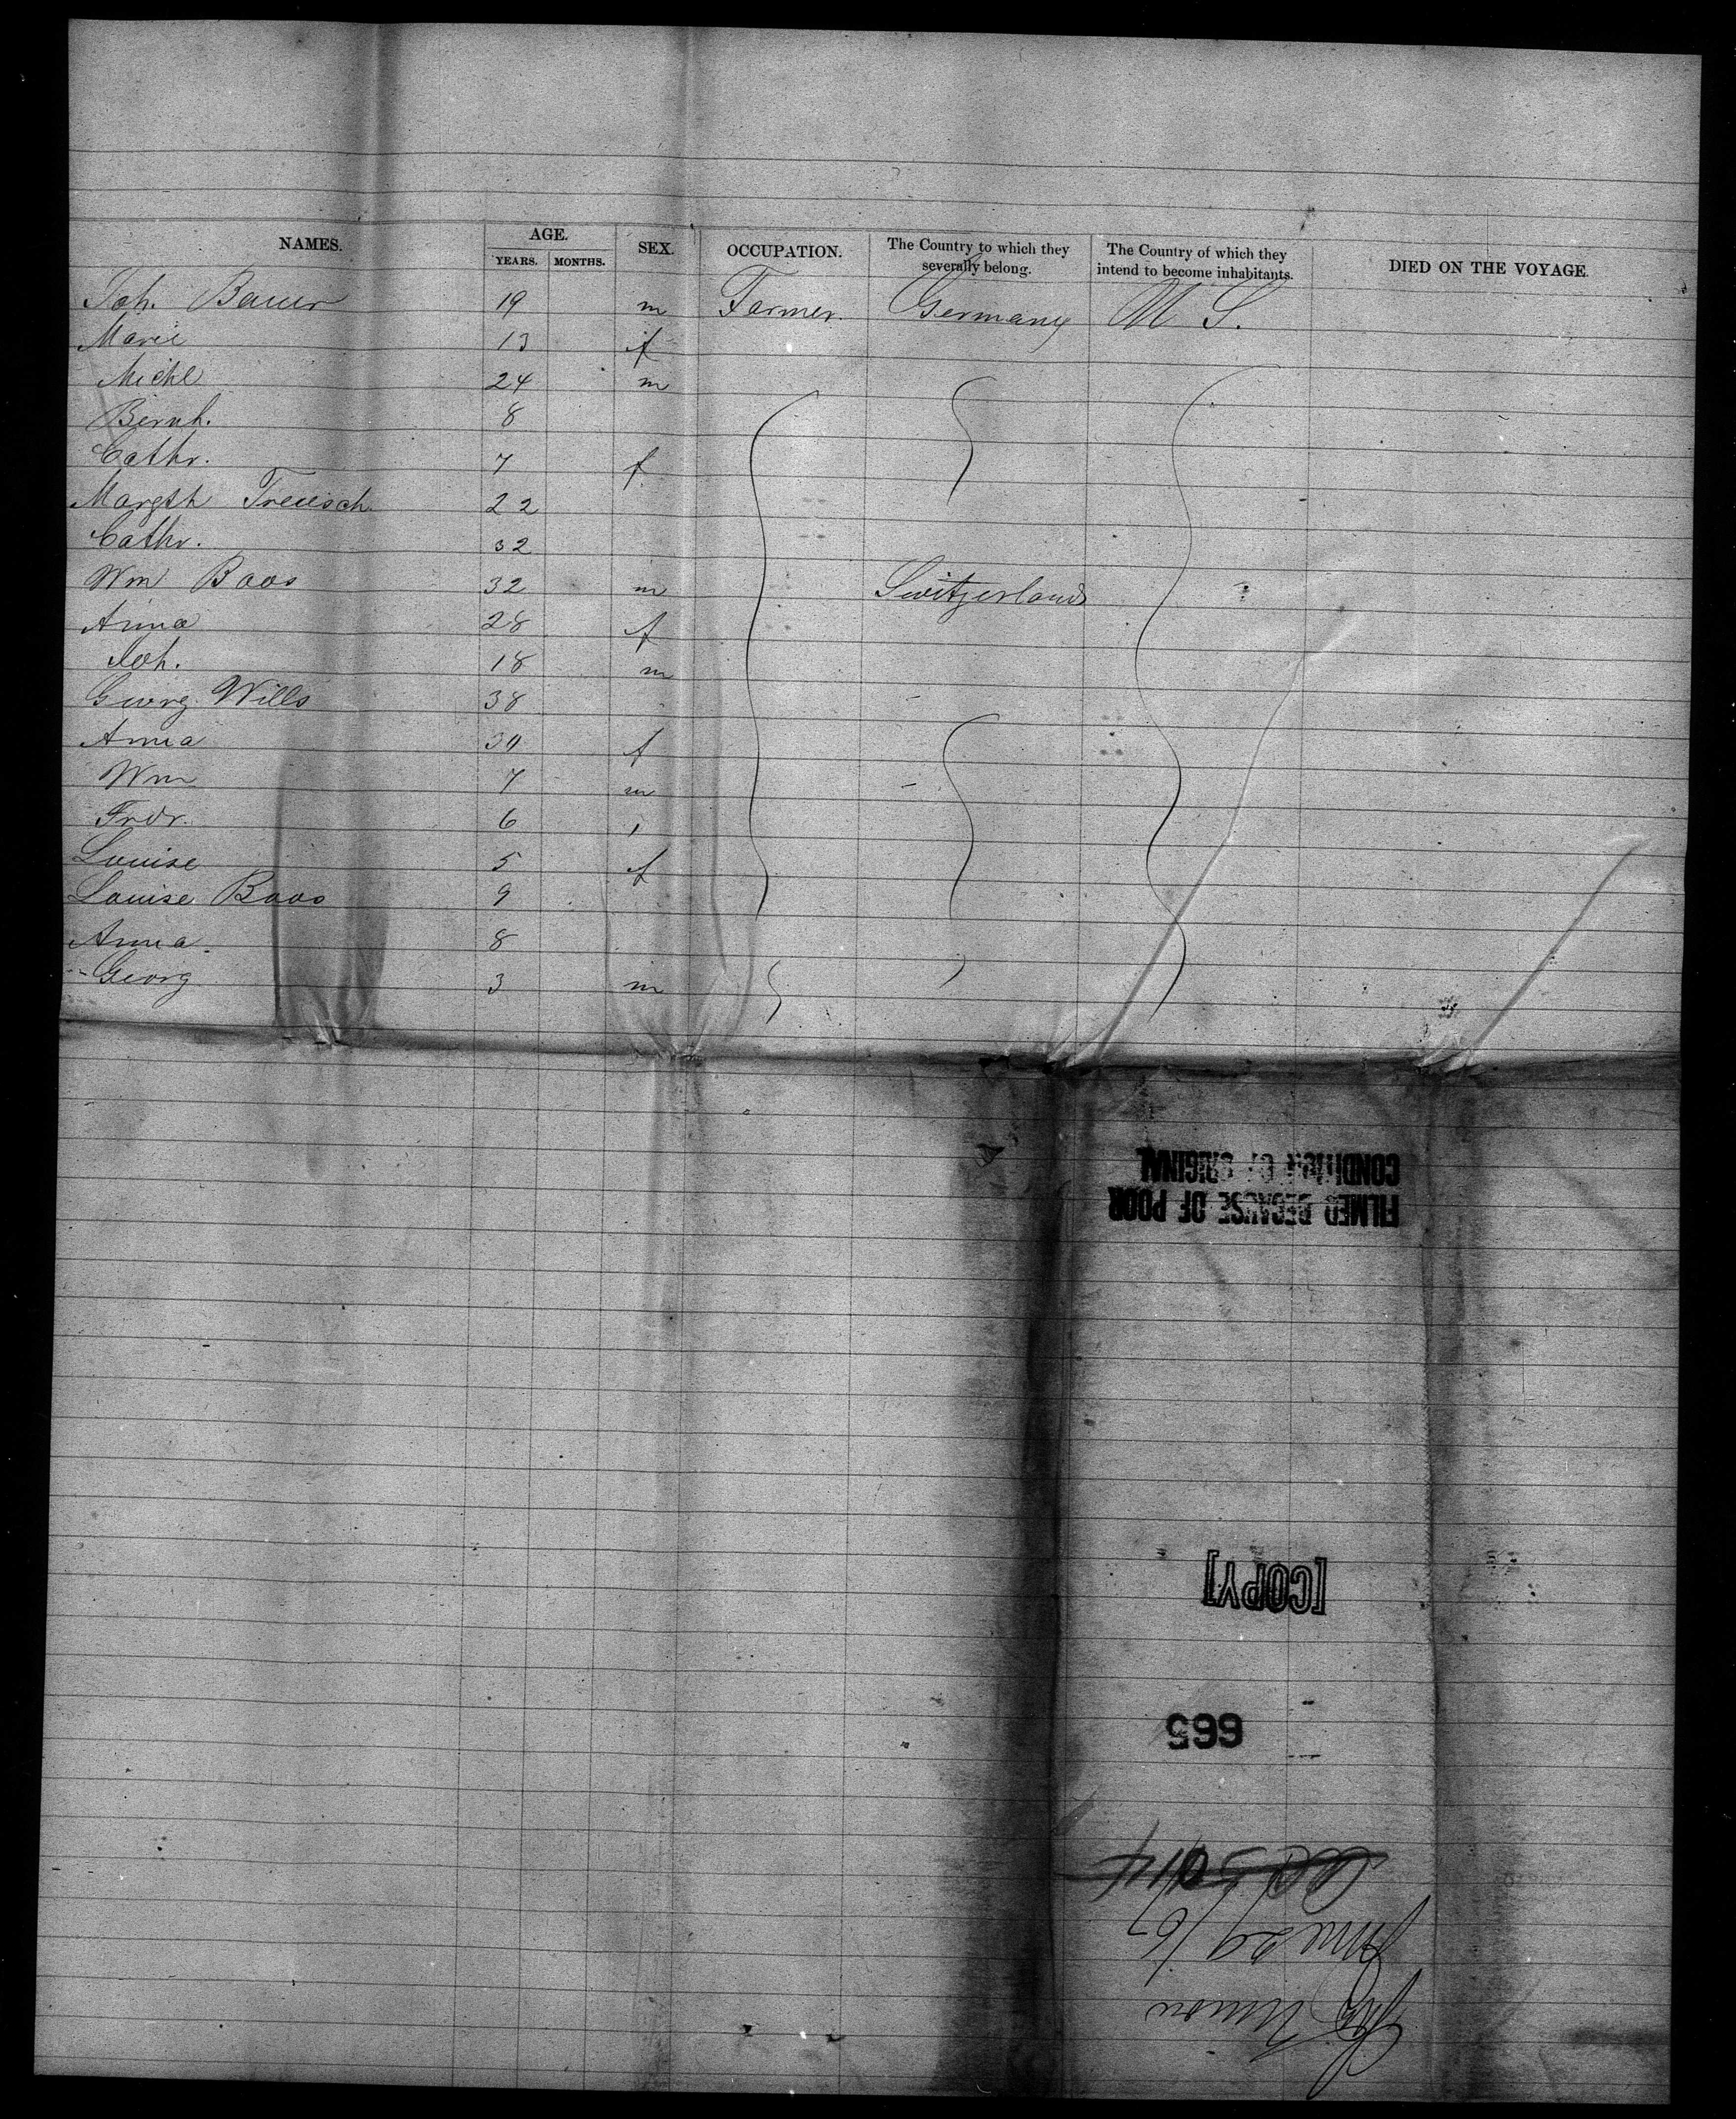 NAMES. AGE. SEX. OCCUPATION. The Country to which they severally belong. The Country of which they intend to become inhabitants. DIED ON THE VOYAGE.
YEARS. MONTHS.
Joh. Bauer 19 m Farmer. Germany U S.
Marie 13 f
Michl 24 m
Bernh. 8
Cathr. 7 f
Margth Treusch 22
Cathr. 32
Wm Boos 32 m Switzerland
Anna 28 f
Joh. 18 m
Georg Wills 38
Anna 30 f
Wm 7 m
Frdr. 6 "
Louise 5 f
Louise Boos 9
Anna 8
Georg 3 m
FILMED BECAUSE OF POOR
CONDITION OF ORIGINAL
[COPY]
665
June 29/67
Union